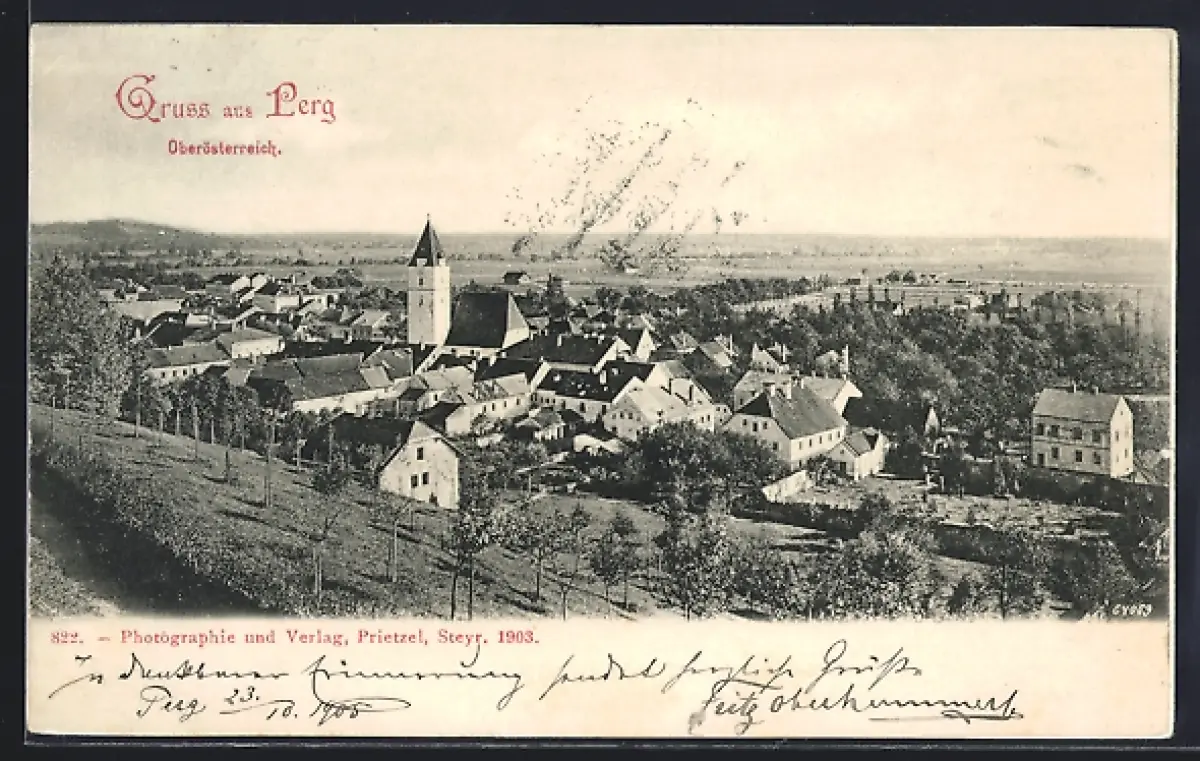 Gruss aus Perg
Oberösterreich.
64069
822. – Photographie und Verlag, Prietzel, Steyr. 1903.
In dankbarer Erinnerung sendet herzliche Grüße
Perg 23. 10. 1905 Fritz